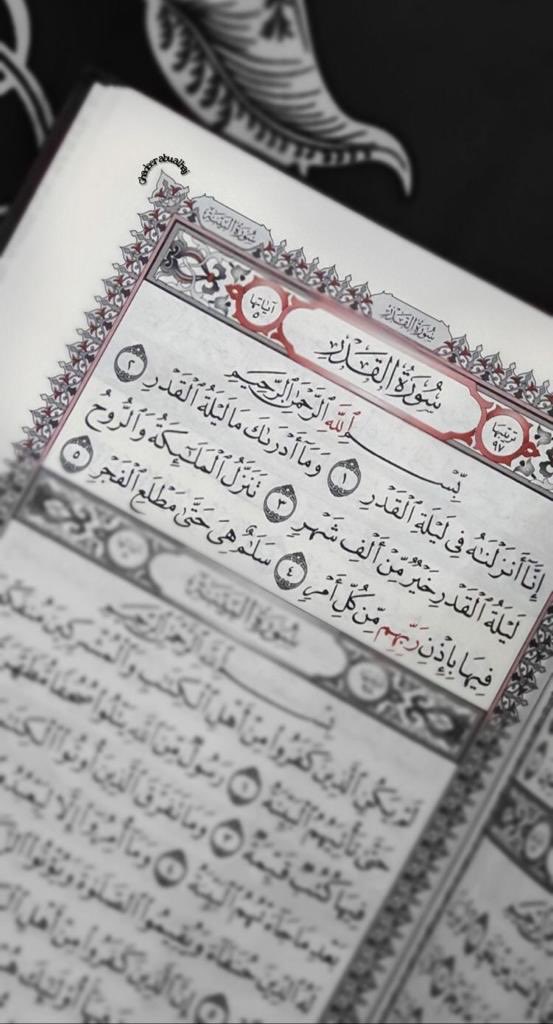 Ghadeer abualhaj
سُورَةُ البَيِّنَةِ
سُورَةُ القَدْرِ
آيَاتُهَا ٥
سُورَةُ الْقَدْرِ
تَرْتِيبُهَا ٩٧
بِسْمِ ٱللَّهِ ٱلرَّحْمَٰنِ ٱلرَّحِيمِ
إِنَّآ أَنزَلْنَٰهُ فِى لَيْلَةِ ٱلْقَدْرِ ١ وَمَآ أَدْرَىٰكَ مَا لَيْلَةُ ٱلْقَدْرِ ٢
لَيْلَةُ ٱلْقَدْرِ خَيْرٌ مِّنْ أَلْفِ شَهْرٍ ٣ تَنَزَّلُ ٱلْمَلَٰٓئِكَةُ وَٱلرُّوحُ
فِيهَا بِإِذْنِ رَبِّهِم مِّن كُلِّ أَمْرٍ ٤ سَلَٰمٌ هِىَ حَتَّىٰ مَطْلَعِ ٱلْفَجْرِ ٥
سُورَةُ البَيِّنَةِ
بِسْمِ ٱللَّهِ ٱلرَّحْمَٰنِ ٱلرَّحِيمِ
لَمْ يَكُنِ ٱلَّذِينَ كَفَرُوا۟ مِنْ أَهْلِ ٱلْكِتَٰبِ وَٱلْمُشْرِكِينَ مُنفَكِّينَ
حَتَّىٰ تَأْتِيَهُمُ ٱلْبَيِّنَةُ ١ رَسُولٌ مِّنَ ٱللَّهِ يَتْلُوا۟ صُحُفًا مُّطَهَّرَةً
فِيهَا كُتُبٌ قَيِّمَةٌ ٣ وَمَا تَفَرَّقَ ٱلَّذِينَ أُوتُوا۟ ٱلْكِتَٰبَ
بَعْدِ مَا جَآءَتْهُمُ ٱلْبَيِّنَةُ ٤ وَمَآ أُمِرُوٓا۟ إِلَّا لِيَعْبُدُوا۟
لَهُ ٱلدِّينَ حُنَفَآءَ وَيُقِيمُوا۟ ٱلصَّلَوٰةَ وَيُؤْتُوا۟
إِنَّ ٱلَّذِينَ كَفَرُوا۟ مِنْ أَهْلِ